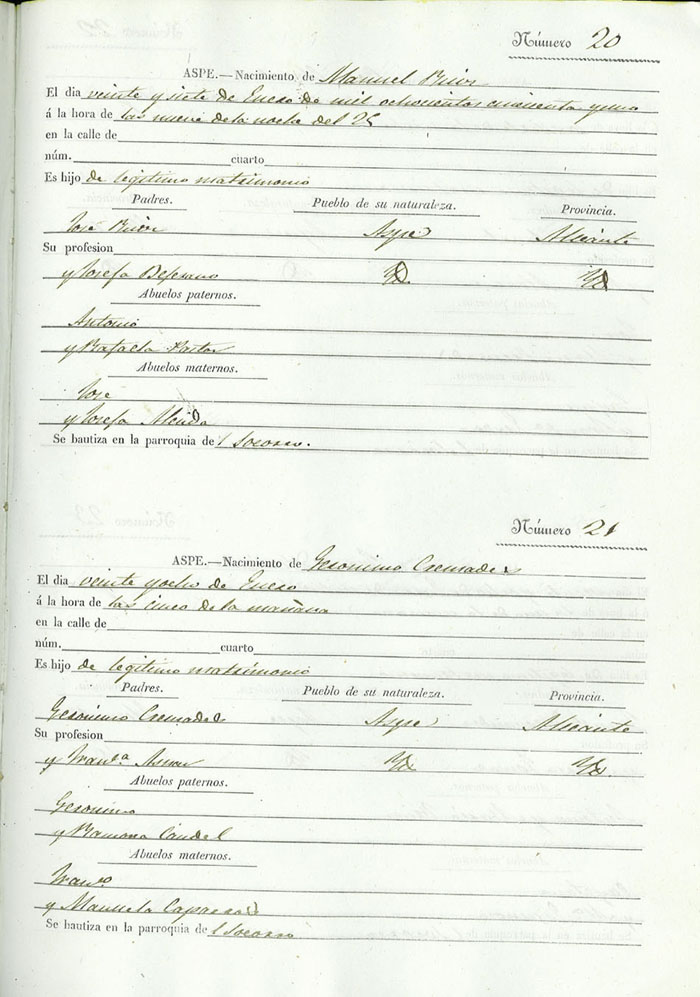 Número 20
ASPE.—Nacimiento de Manuel Prior
El dia veinte y siete de Enero de mil ochocientos cincuenta y uno
á la hora de las nueve de la noche del 25
en la calle de
núm. cuarto
Es hijo de legitimo matrimonio
Padres. Pueblo de su naturaleza. Provincia.
José Prior Aspe Alicante
Su profesion
y Josefa Yd Yd
Abuelos paternos.
Antonio
y Rafaela Pastor
Abuelos maternos.
José
y Josefa
Se bautiza en la parroquia de l Socorro.
Número 21
ASPE.—Nacimiento de Geronimo Cremades
El dia veinte y ocho de Enero
á la hora de las cinco de la mañana
en la calle de
núm. cuarto
Es hijo de legitimo matrimonio
Padres. Pueblo de su naturaleza. Provincia.
Geronimo Cremades Aspe Alicante
Su profesion
y Fran.ca Yd Yd
Abuelos paternos.
Geronimo
y Ramona Candel
Abuelos maternos.
Fran.co
y Manuela
Se bautiza en la parroquia de l Socorro